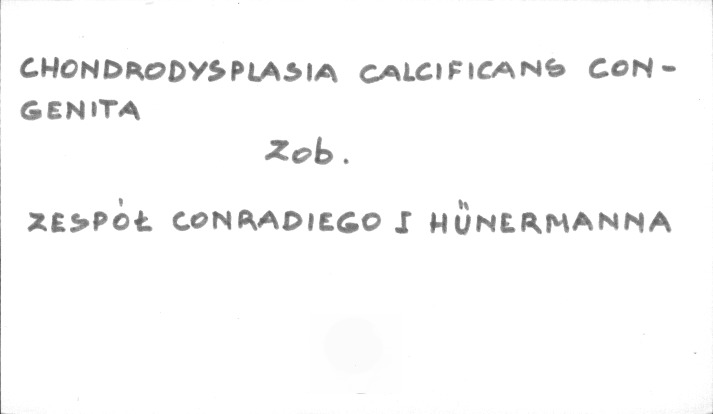 CHONDRODYSPLASIA CALCIFICANS CON-
GENITA
Zob.
ZESPÓŁ CONRADIEGO I HÜNERMANNA